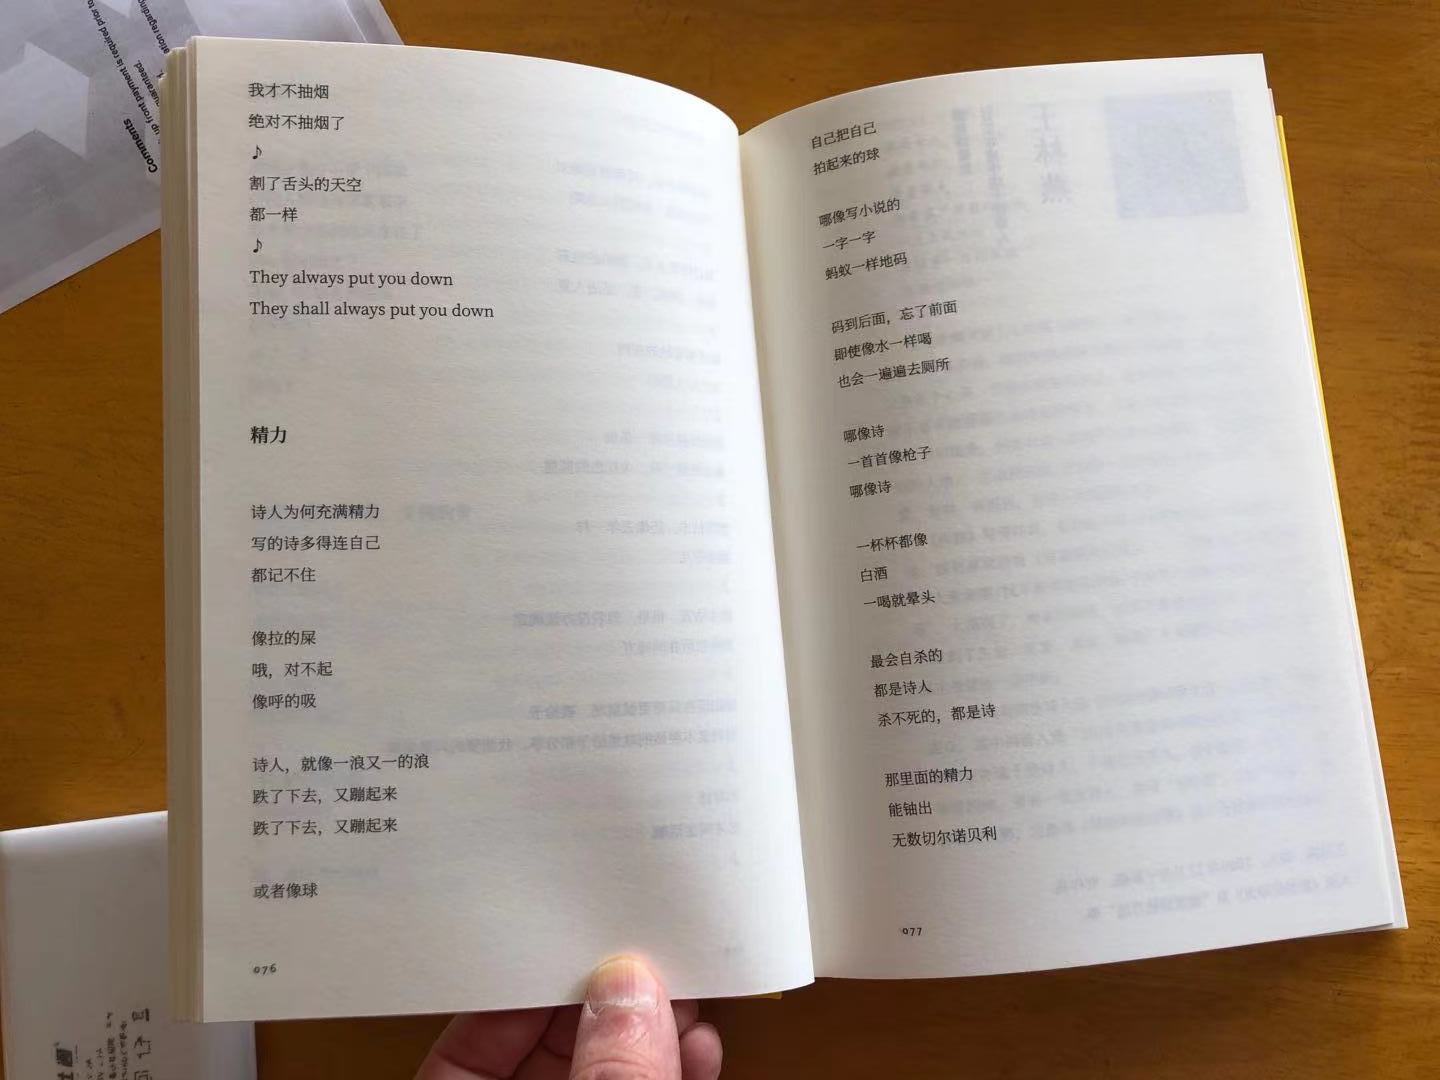 我才不抽烟
绝对不抽烟了
♪
割了舌头的天空
都一样
♪
They always put you down
They shall always put you down
精力
诗人为何充满精力
写的诗多得连自己
都记不住
像拉的屎
哦，对不起
像呼的吸
诗人，就像一浪又一的浪
跌了下去，又蹦起来
跌了下去，又蹦起来
或者像球
076
自己把自己
拍起来的球
哪像写小说的
一字一字
蚂蚁一样地码
码到后面，忘了前面
即使像水一样喝
也会一遍遍去厕所
哪像诗
一首首像枪子
哪像诗
一杯杯都像
白酒
一喝就晕头
最会自杀的
都是诗人
杀不死的，都是诗
那里面的精力
能铀出
无数切尔诺贝利
077
Comments
up front payment is required prior to
guaranteed.
ation regarding